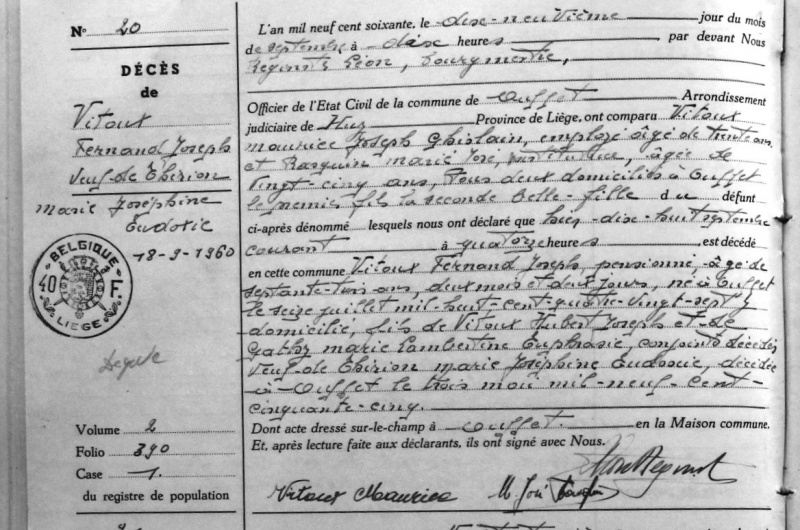 N° 20
DÉCÈS
de
Vitoux
Fernand Joseph
Veuf-de Thirion
Marie Joséphine
Eudoxie
18-9-1960
BELGIQUE
40 F.
LIEGE
Volume 2
Folio 390
Case 1.
du registre de population
L'an mil neuf cent soixante, le dix-neuvième jour du mois
de septembre à dix heures par devant Nous
Regimts Léon, Bourgmestre,
Officier de l'Etat Civil de la commune de Ouffet Arrondissement
judiciaire de Huy Province de Liège, ont comparu Vitoux
Maurice Joseph Ghislain, employé âgé de trente ans
et Rasquin Marie José, institutrice, âgée de
vingt-cinq ans, tous deux domiciliés à Ouffet
le premier fils la seconde belle-fille du défunt
ci-après dénommé lesquels nous ont déclaré que hier dix-huit septembre
courant à quatorze heures, est décédé
en cette commune Vitoux Fernand Joseph, pensionné, âgé de
septante-trois ans, deux mois et deux jours, né à Ouffet
le seize juillet mil-huit-cent-quatre-vingt-sept y
domicilié, fils de Vitoux Hubert Joseph et de
Gathy Marie Lambertine Euphrasie, conjoints décédés
Veuf-de Thirion Marie Joséphine Eudoxie, décédée
à Ouffet le trois mai mil-neuf-cent-
cinquante-cinq.
Dont acte dressé sur-le-champ à Ouffet. en la Maison commune.
Et, après lecture faite aux déclarants, ils ont signé avec Nous.
Vitoux Maurice M. José